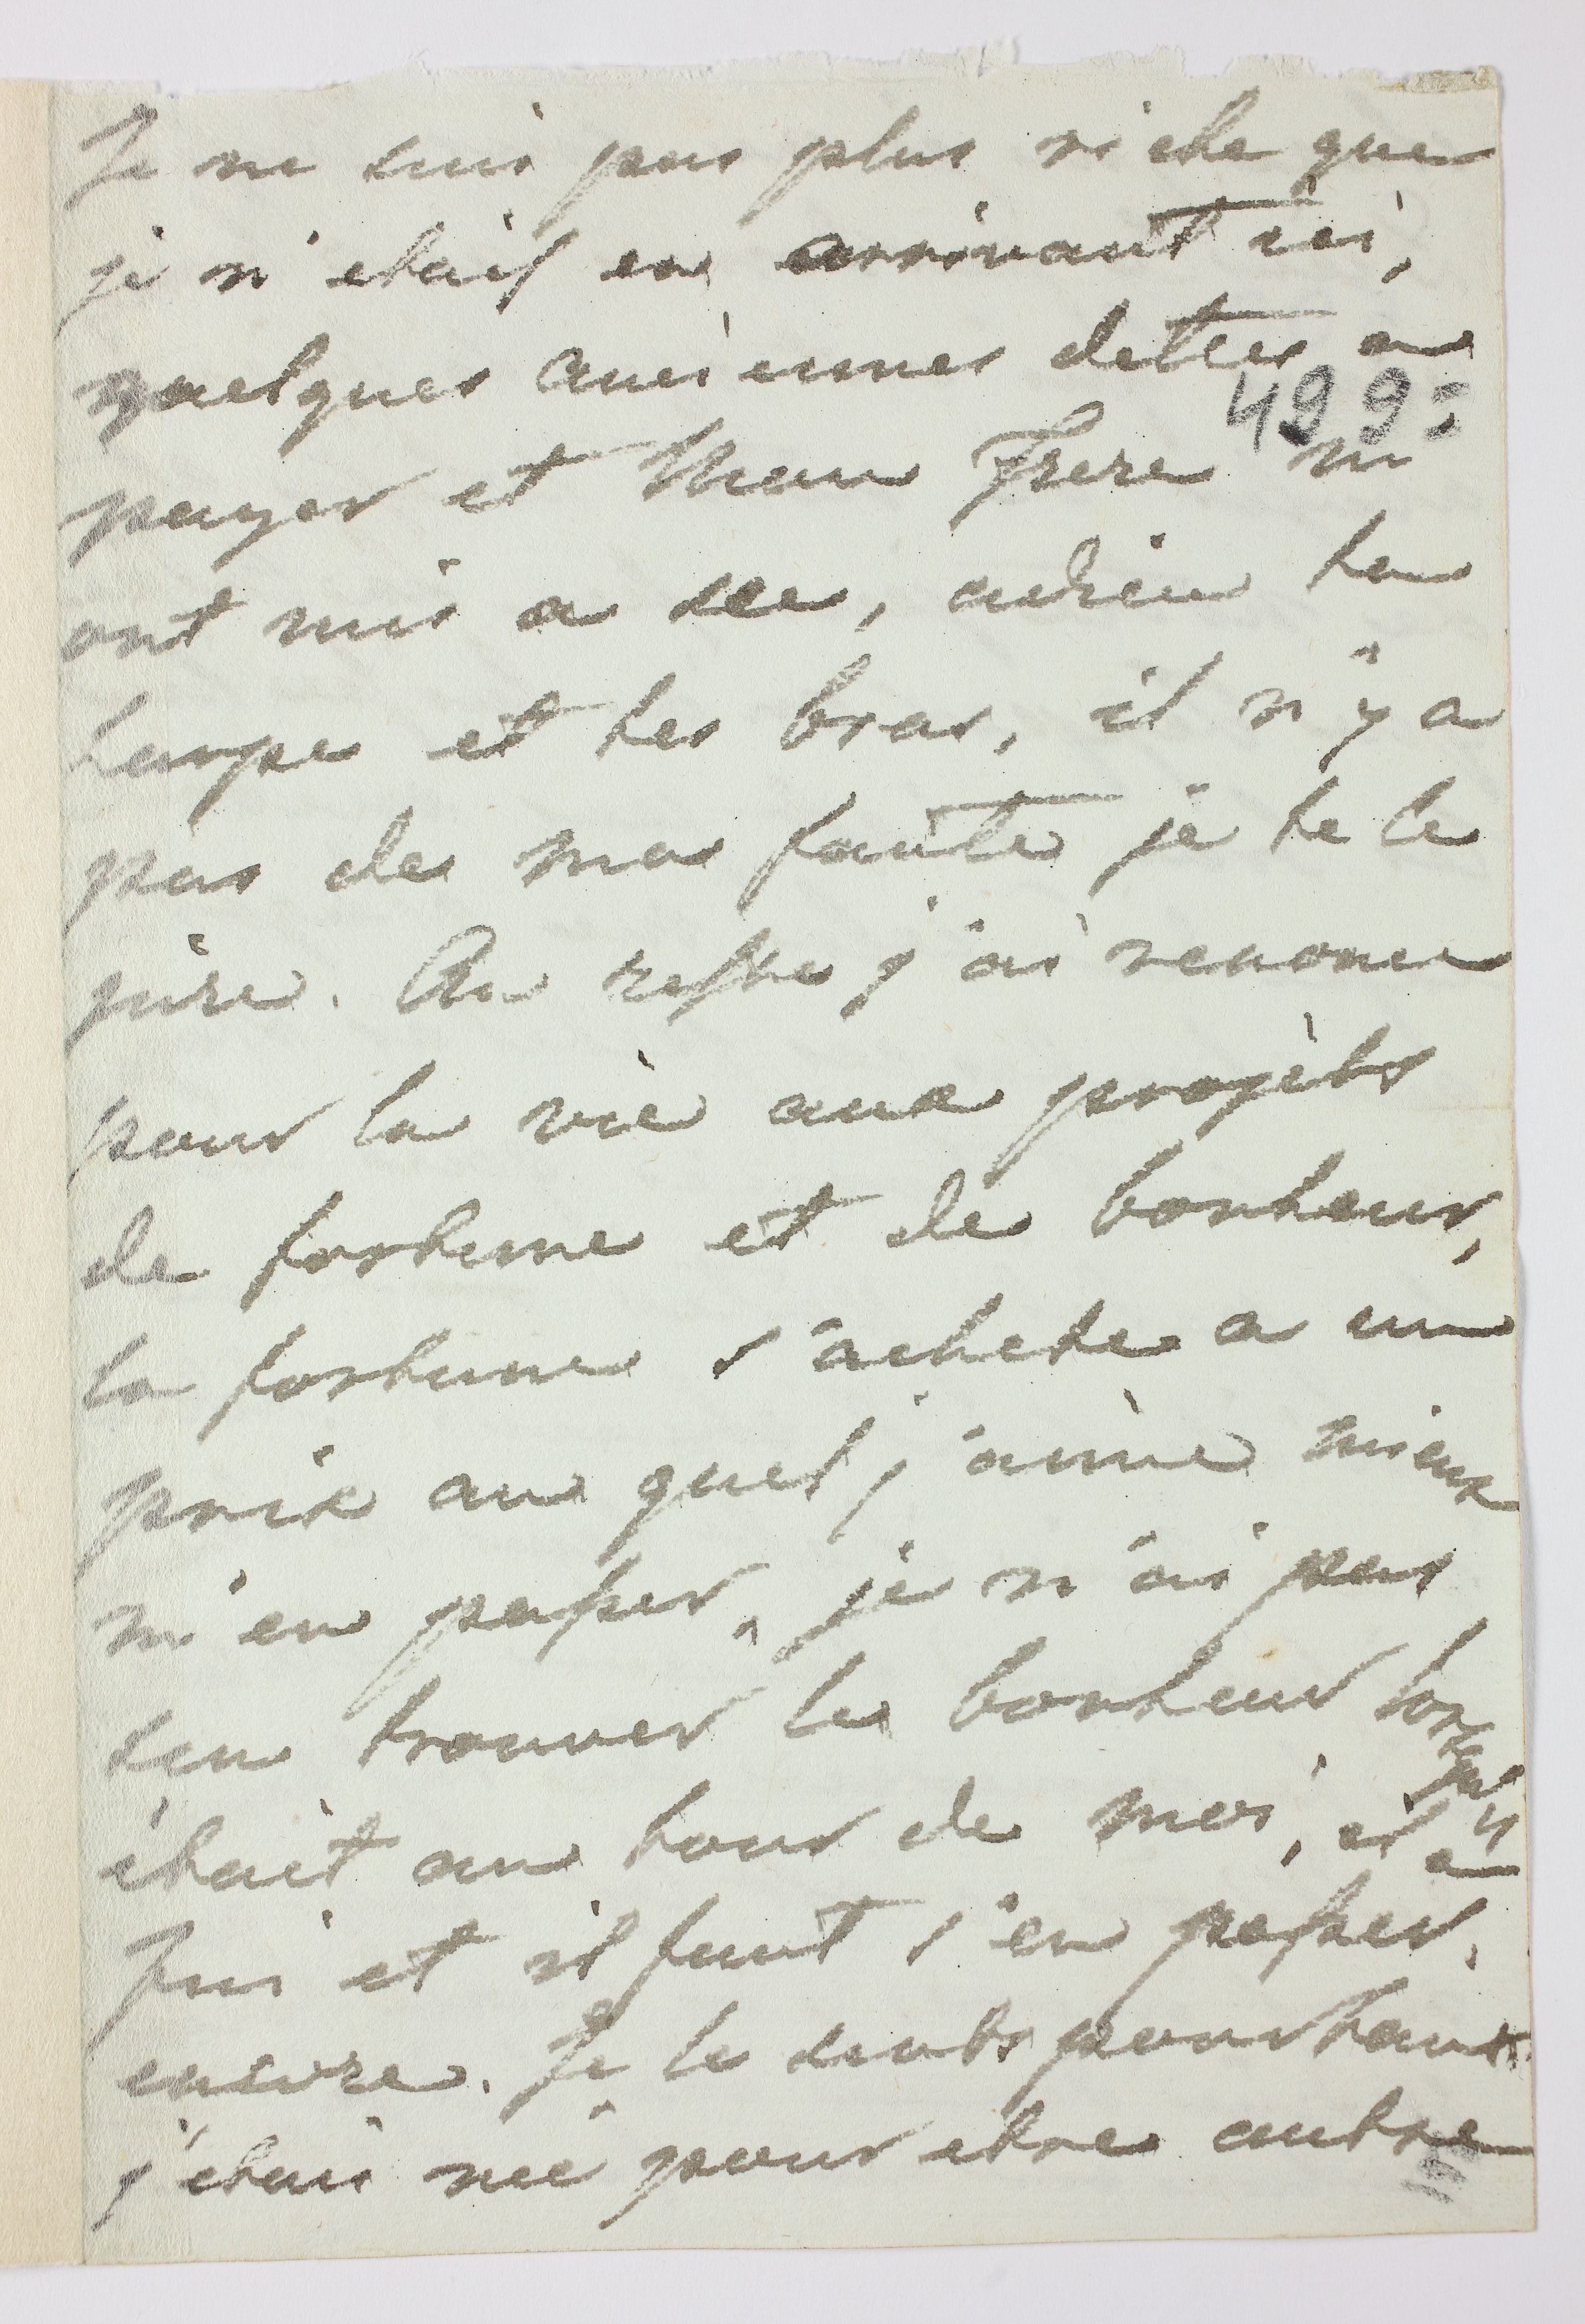 Je ne suis pas plus riche que
je n'etais en arrivant ici,
quelques anciennes dettes a
499:
payer et Mon Frere m
ont mis a sec, adieu ta
harpe et tes bras, il n'y a
pas de ma faute je te le
jure. Au reste j'ai renoncé
pour la vie aux projèts
de fortune et de bonheur,
la fortune s'achete a un
prix au quel j'aime mieux
m'en passer, je n'ai pas
seu trouver le bonheur lors
qu'il
était au tour de moi, il a
Fui et il faut s'en passer
encore. Je le sents pourtant
j'étais né pour etre autre